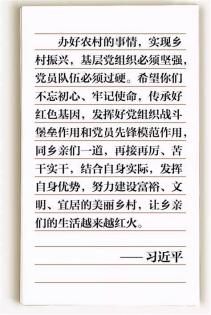 办好农村的事情，实现乡
村振兴，基层党组织必须坚强，
党员队伍必须过硬。希望你们
不忘初心、牢记使命，传承好
红色基因，发挥好党组织战斗
堡垒作用和党员先锋模范作用，
同乡亲们一道，再接再厉、苦
干实干，结合自身实际，发挥
自身优势，努力建设富裕、文
明、宜居的美丽乡村，让乡亲
们的生活越来越红火。
——习近平